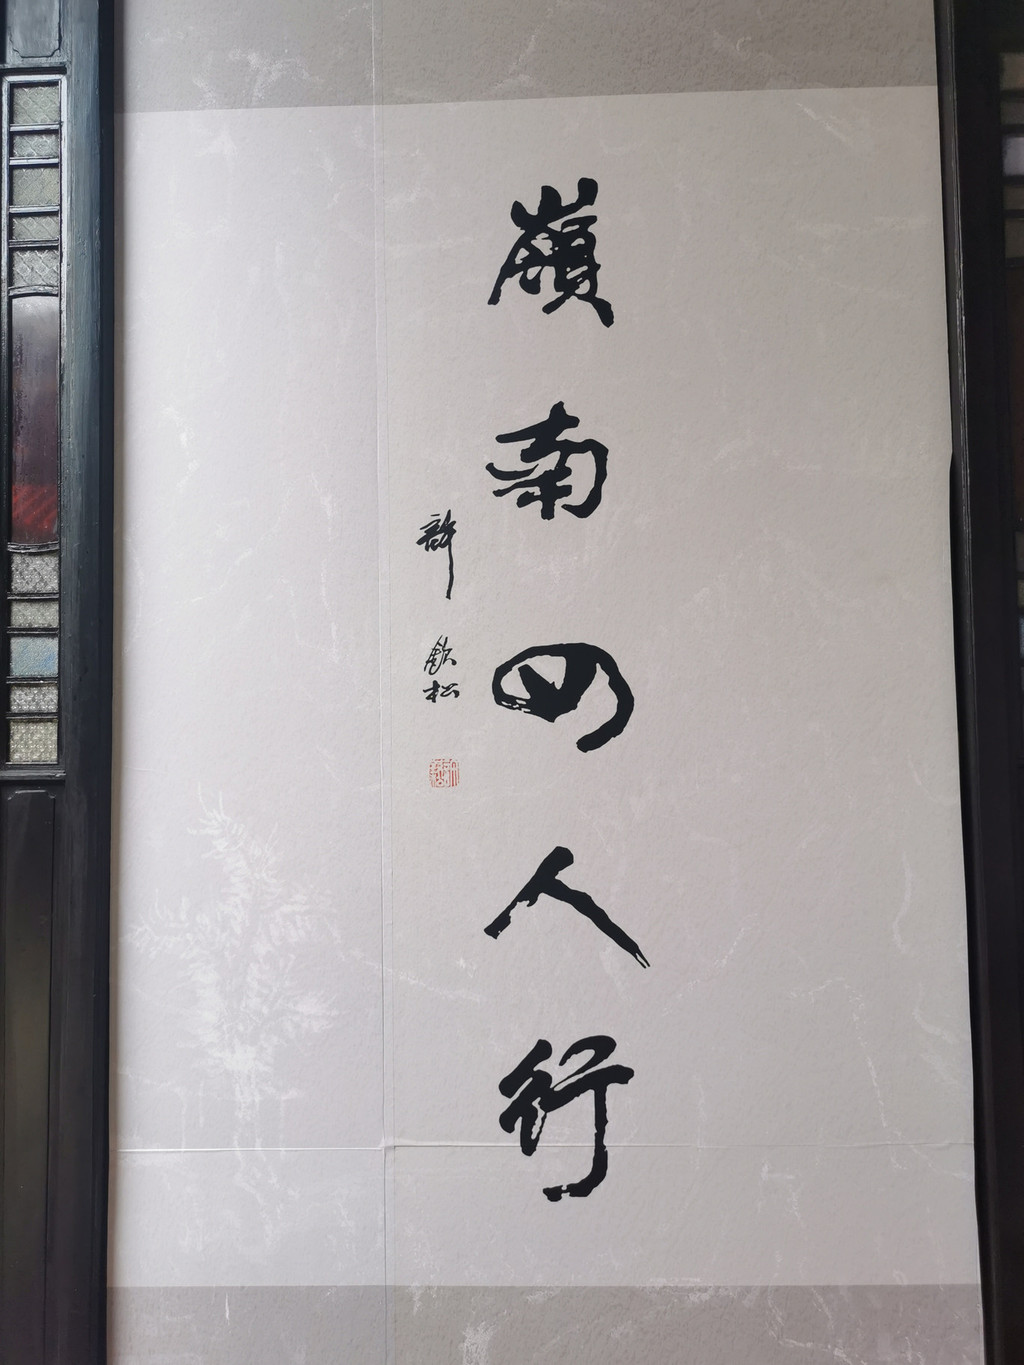 嶺南四人行
許欽松